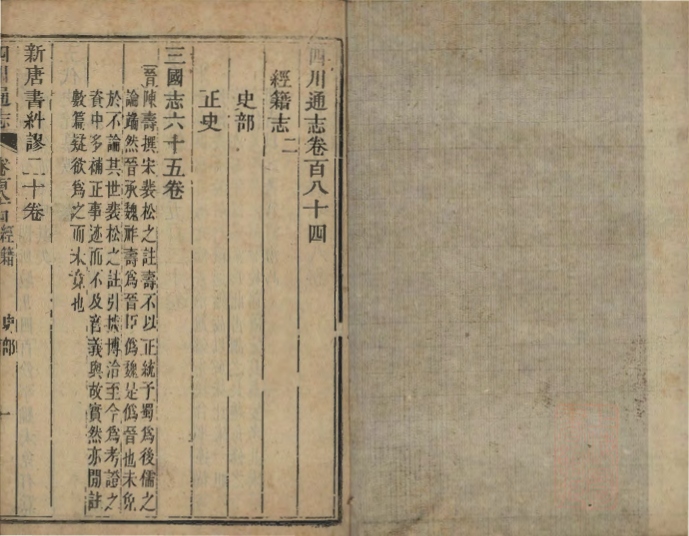 四川通志卷百八十四
經籍志二
史部
正史
三國志六十五卷
晉陳壽撰宋裴松之註壽不以正統予蜀爲後儒之
論端然晉承魏祚壽爲晉臣僞魏是僞晉也未免
於不論其世裴松之註引據博洽至今爲考證之
資中多補正事迹而不及音義與故實然亦間註
數篇疑欲爲之而未竟也
新唐書糾謬二十卷
四川通志
經籍
史部
一